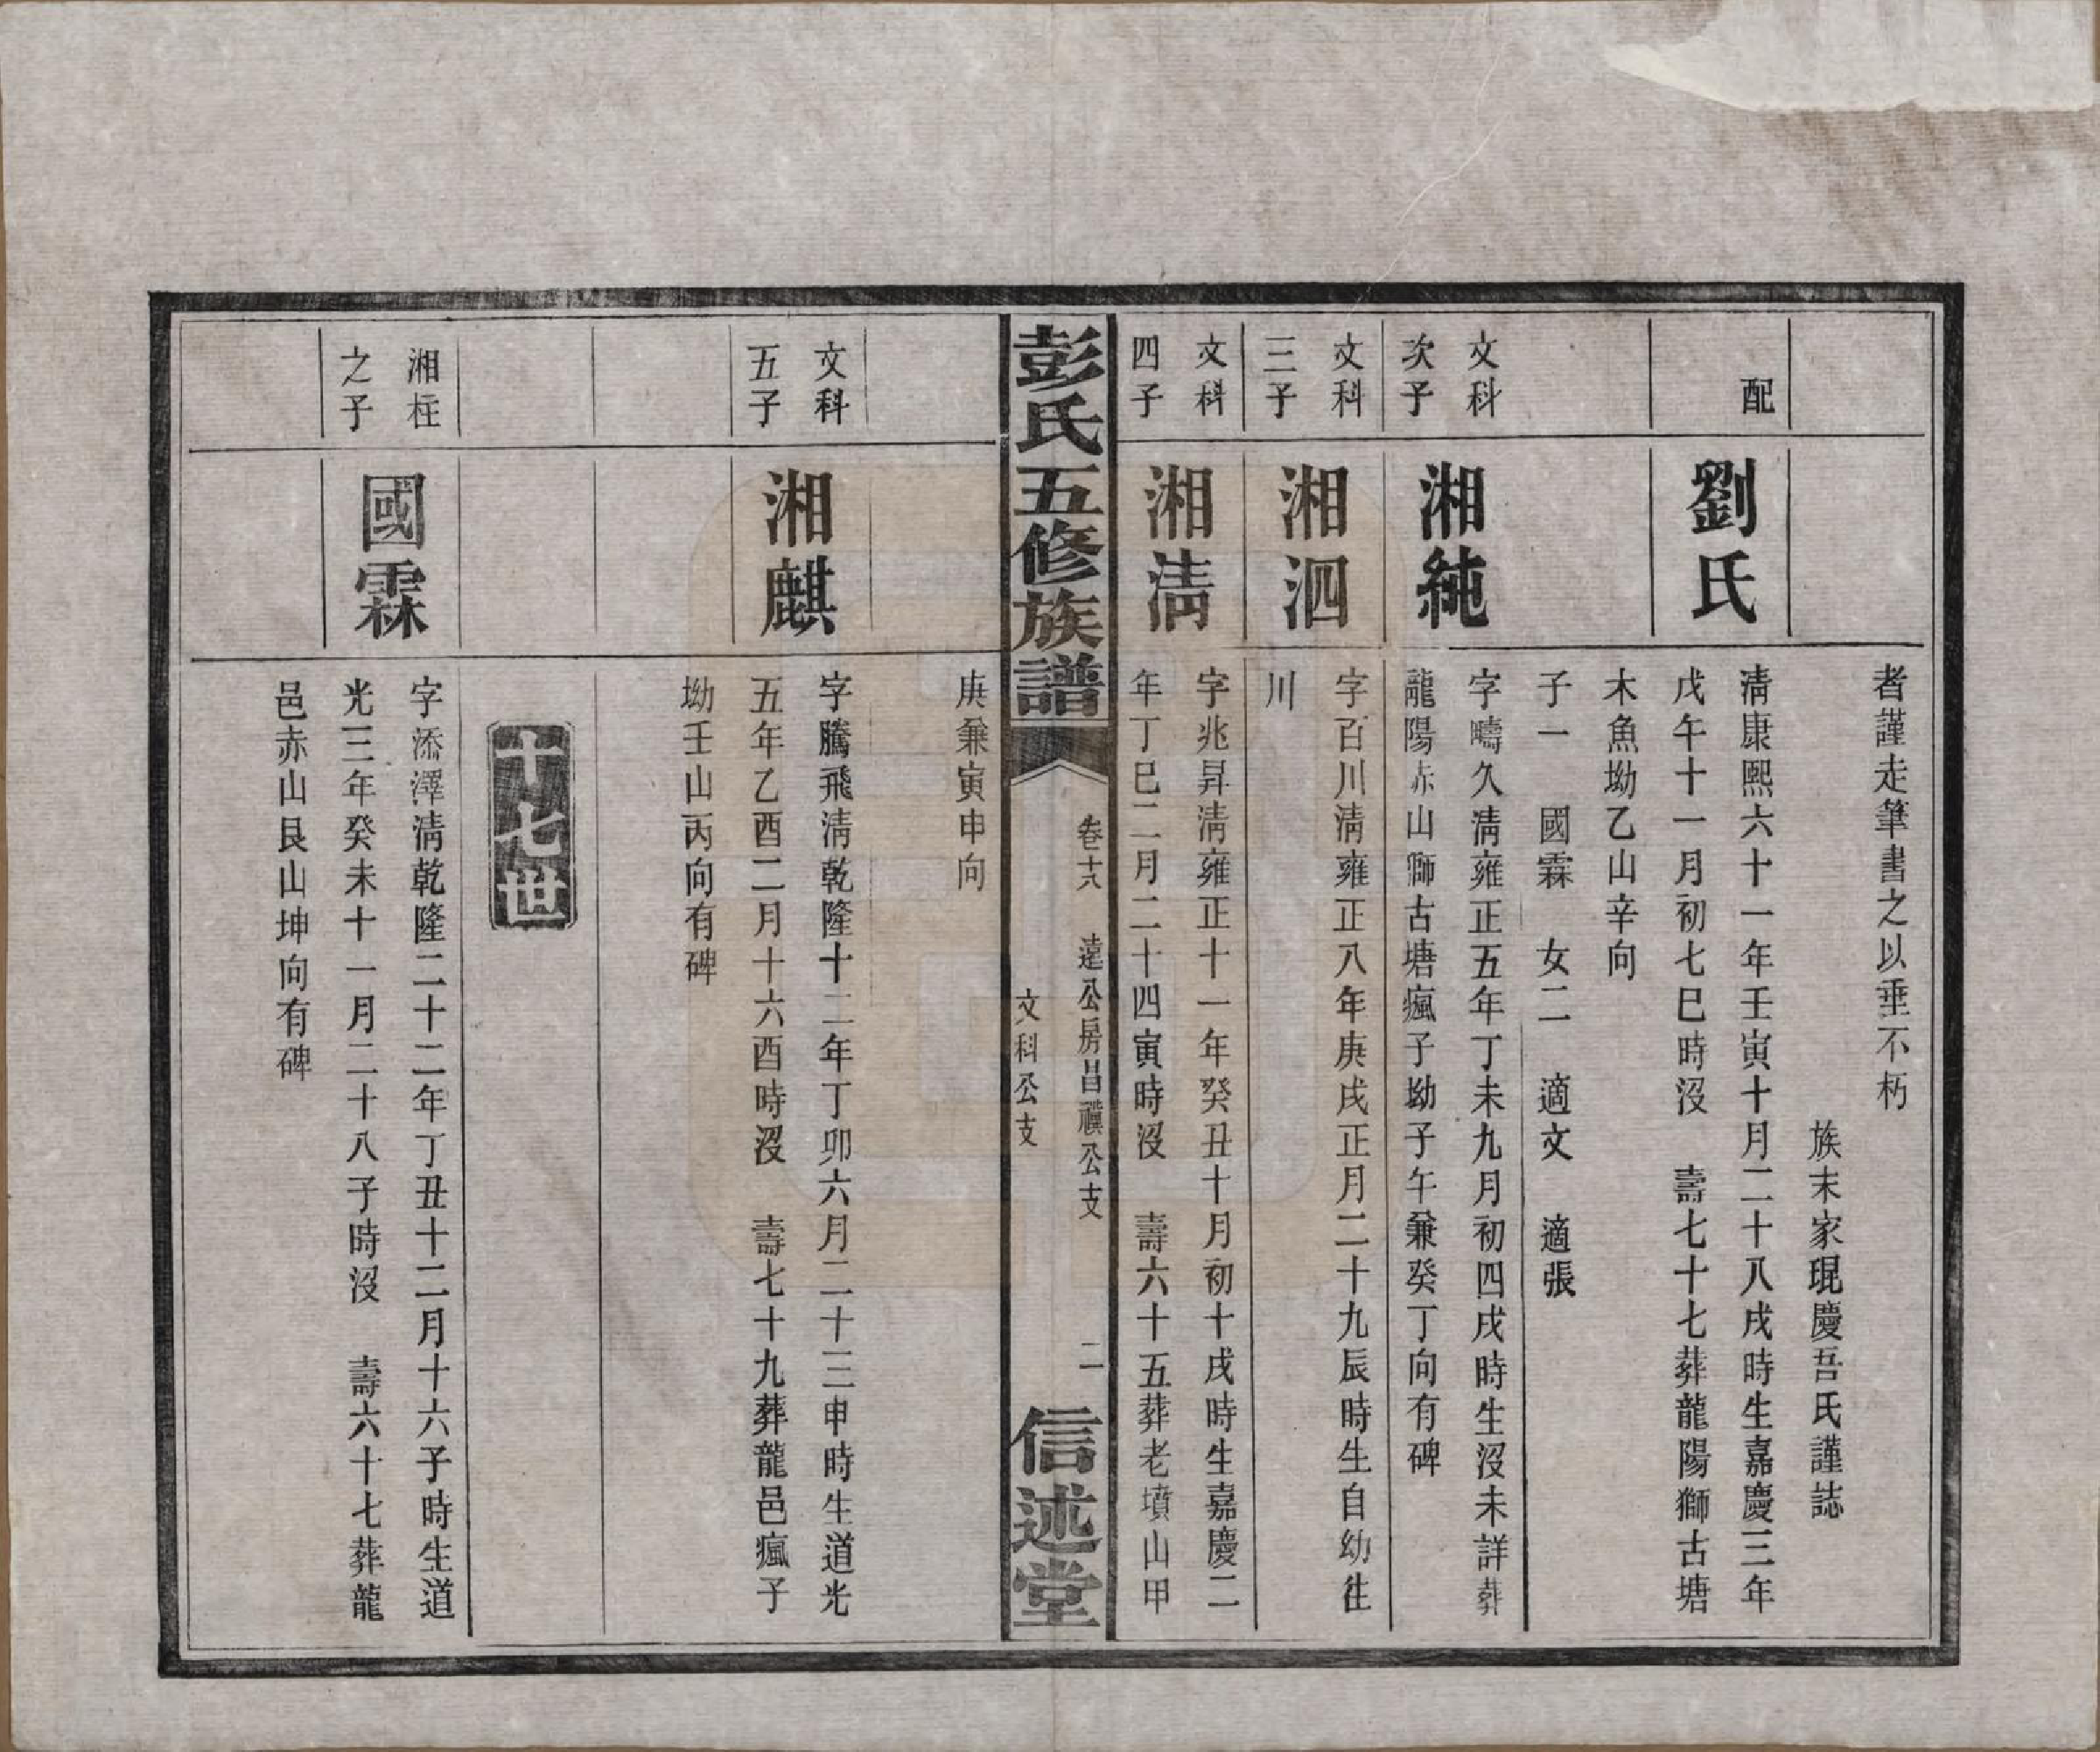 者謹走筆書之以垂不朽
族末家琨慶吾氏謹誌
配
劉氏
淸康熙六十一年壬寅十月二十八戌時生嘉慶三年
戊午十一月初七巳時沒　壽七十七葬龍陽獅古塘
木魚坳乙山辛向
子一　國霖　女二　適文　適張
文科
次子
湘純
字疇久淸雍正五年丁未九月初四戌時生沒未詳葬
龍陽赤山獅古塘瘋子坳子午兼癸丁向有碑
文科
三子
湘泗
字百川淸雍正八年庚戌正月二十九辰時生自幼往
川
文科
四子
湘淸
字兆昇淸雍正十一年癸丑十月初十戌時生嘉慶二
年丁巳二月二十四寅時沒　壽六十五葬老墳山甲
彭氏五修族譜
卷十六　遠公房昌禩公支
文科公支
二
信述堂
庚兼寅申向
文科
五子
湘麒
字騰飛淸乾隆十二年丁卯六月二十三申時生道光
五年乙酉二月十六酉時沒　壽七十九葬龍邑瘋子
坳壬山丙向有碑
十七世
湘柱
之子
國霖
字添澤淸乾隆二十二年丁丑十二月十六子時生道
光三年癸未十一月二十八子時沒　壽六十七葬龍
邑赤山艮山坤向有碑